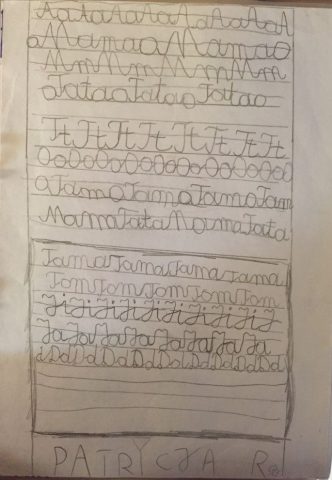 AtatatatatatatatA
aMamaaMamao
MmMmMmMmMm
aTataoTataoTatao
TtTtTtTtTtTtTtTt
OoOoOoOoOoOoOoOo
aTamaTamaTamaTam
MamaTataMamaTata
TamaTamaTamaTama
TomTomTomTomTom
JiJiJiJiJiJiJiJ
JaJaJaJaJaJaJaJa
dDdDdDdDdDdDdDd
PATRYCJA R